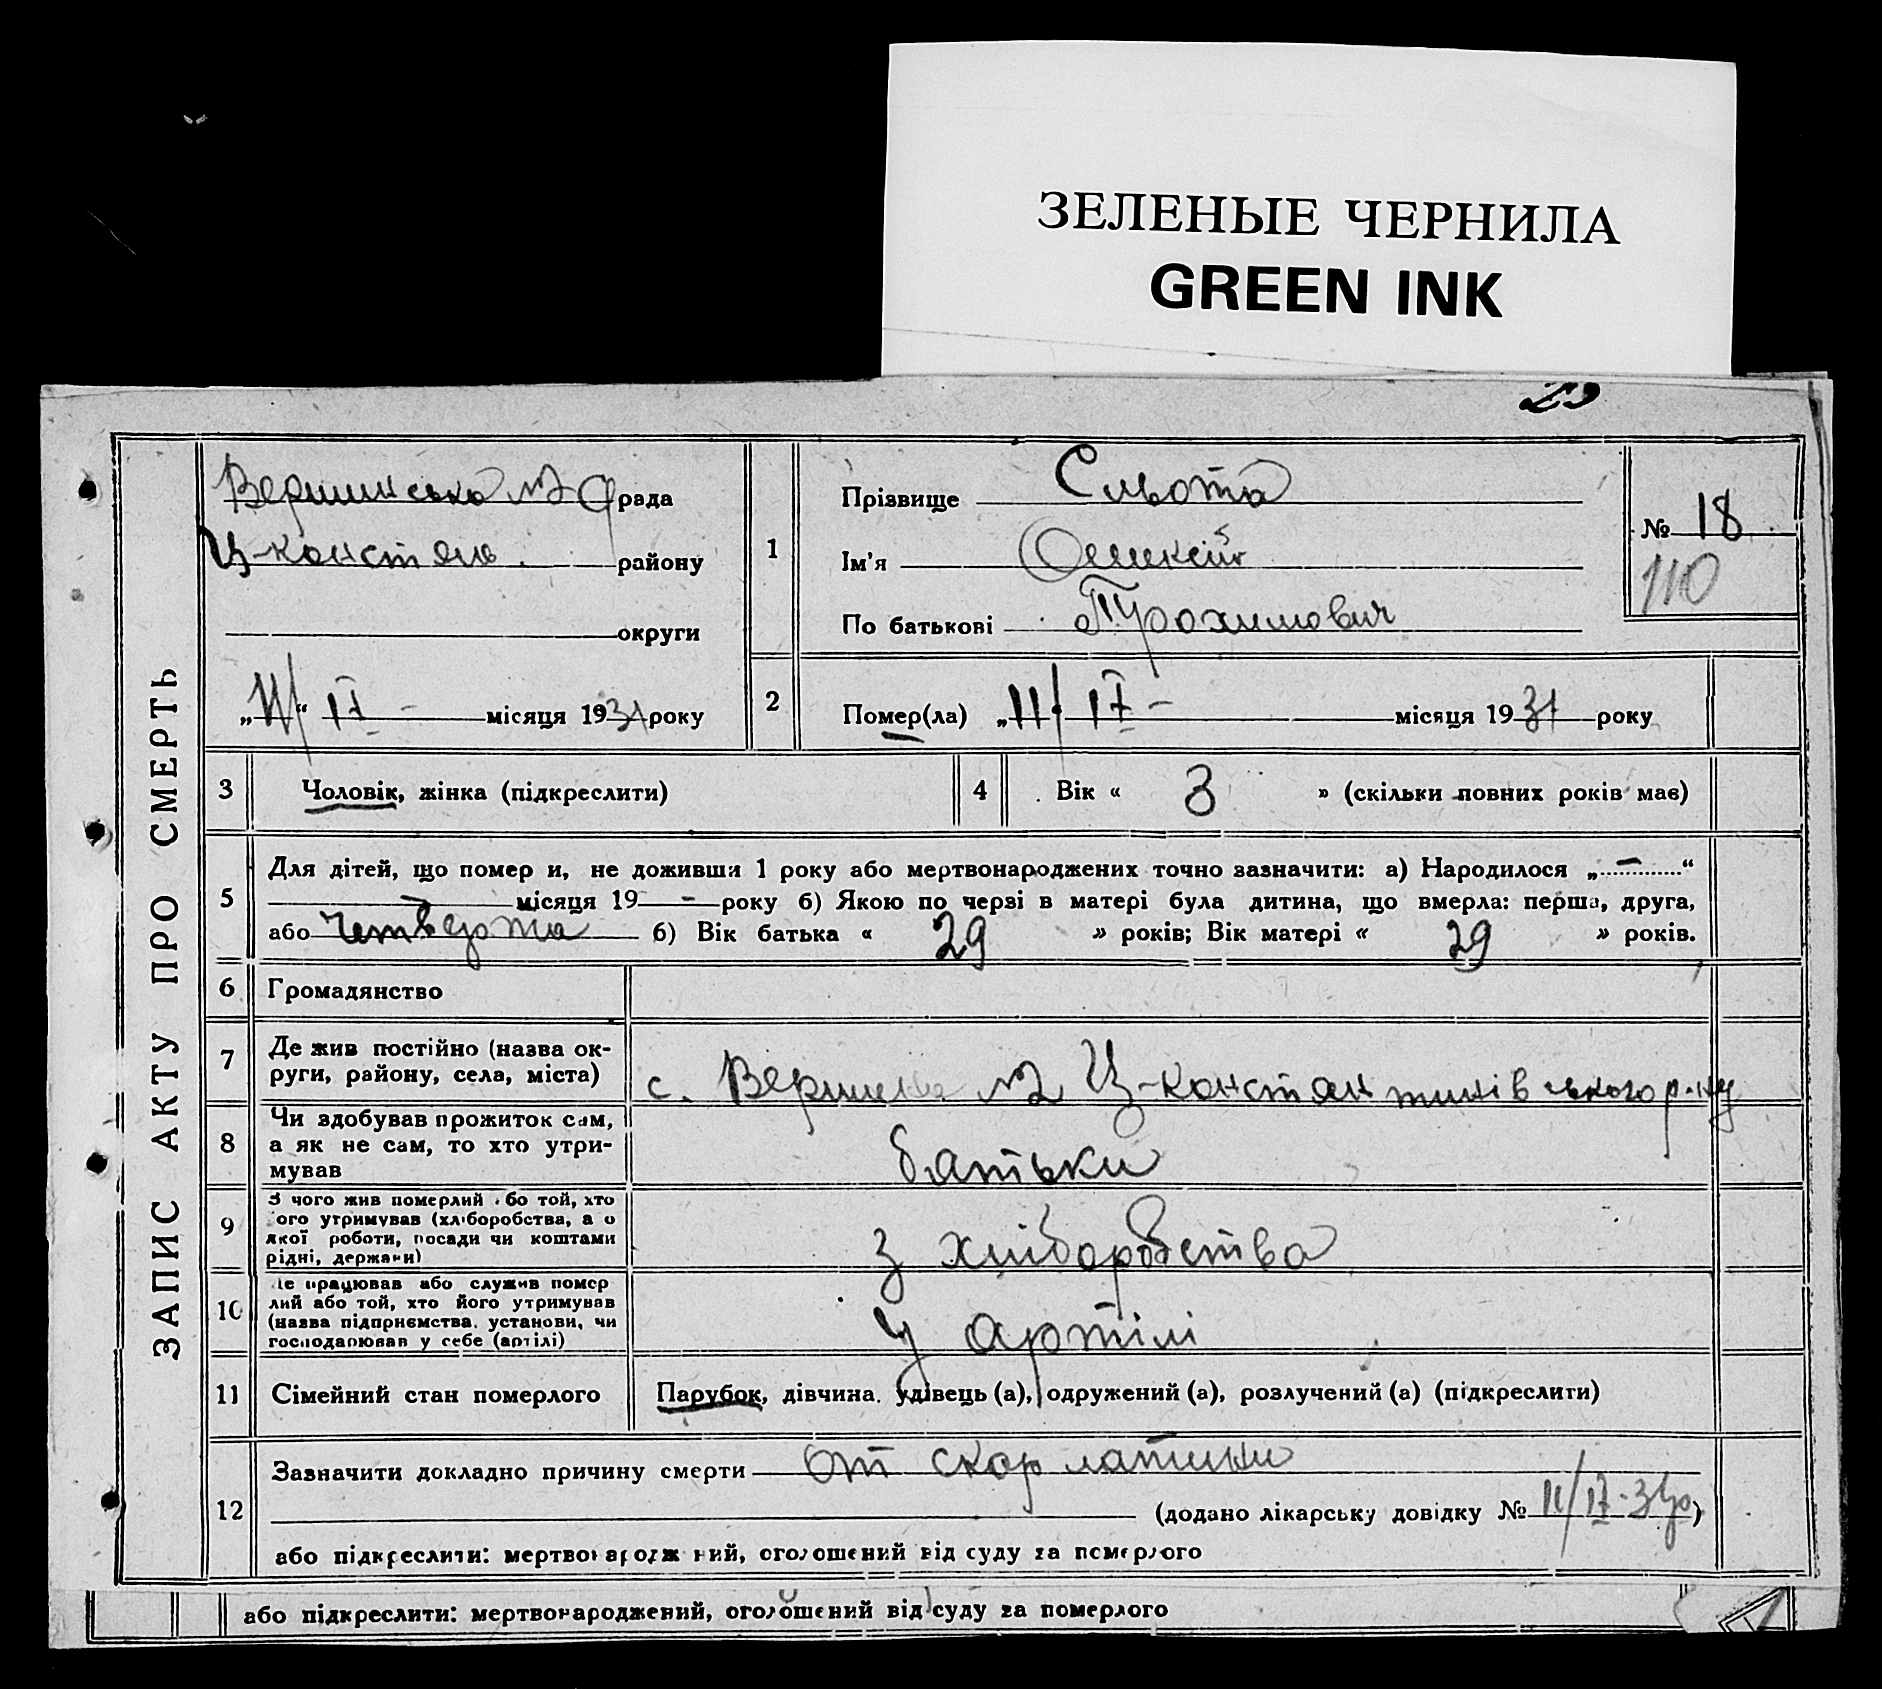 ЗЕЛЕНЫЕ ЧЕРНИЛА
GREEN INK
ЗАПИС АКТУ ПРО СМЕРТЬ
Вершинська №2 рада
Ц-констян. району
округи
„11“ IV - місяця 1931 року
1
Прізвище Сльота
Ім'я Олексій
По батькові Трохимович
№ 18
110
2
Помер(ла) „11“ IV - місяця 1931 року
3 Чоловік, жінка (підкреслити)
4 Вік « 3 » (скільки повних років має)
5 Для дітей, що помер и, не доживши 1 року або мертвонароджених точно зазначити: а) Народилося „—“
— місяця 19 — року б) Якою по черзі в матері була дитина, що вмерла: перша, друга,
або четверта б) Вік батька « 29 » років; Вік матері « 29 » років.
6 Громадянство
7 Де жив постійно (назва ок-
руги, району, села, міста)
с. Вершина №2 Ц-констянтинівського р-ну
8 Чи здобував прожиток сам,
а як не сам, то хто утри-
мував
батьки
9 З чого жив померлий або той, хто
його утримував (хліборобства, а о
якої роботи, посади чи коштами
рідні, держави)
з хліборобства
10 Де працював або служив помер
лий або той, хто його утримував
(назва підприємства, установи, чи
господарював у себе (артілі)
у артілі
11 Сімейний стан померлого
Парубок, дівчина, удівець (а), одружений (а), розлучений (а) (підкреслити)
12 Зазначити докладно причину смерти от скорлатини
(додано лікарську довідку № 11/IV-31р)
або підкреслити: мертвонароджений, оголошений від суду за померлого
або підкреслити: мертвонароджений, оголошений від суду за померлого